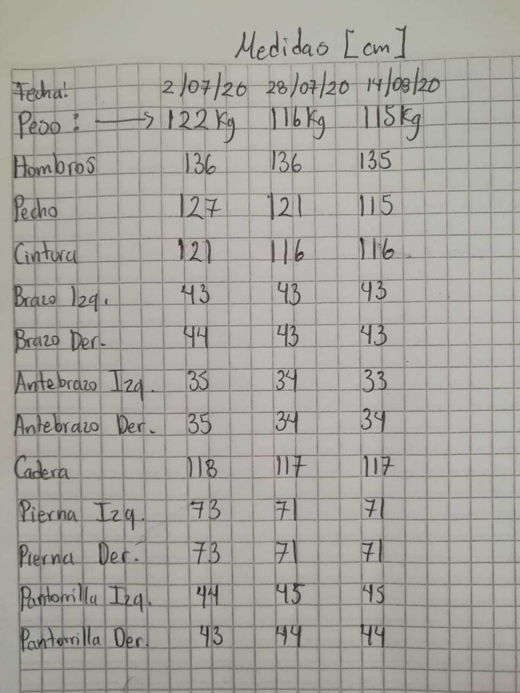 Medidas [cm]
Fecha: 2/07/20 28/07/20 14/08/20
Peso: → 122 kg 116 kg 115 kg
Hombros 136 136 135
Pecho 127 121 115
Cintura 121 116 116
Brazo Izq. 43 43 43
Brazo Der. 44 43 43
Antebrazo Izq. 35 34 33
Antebrazo Der. 35 34 34
Cadera 118 117 117
Pierna Izq. 73 71 71
Pierna Der. 73 71 71
Pantorrilla Izq. 44 45 45
Pantorrilla Der. 43 44 44